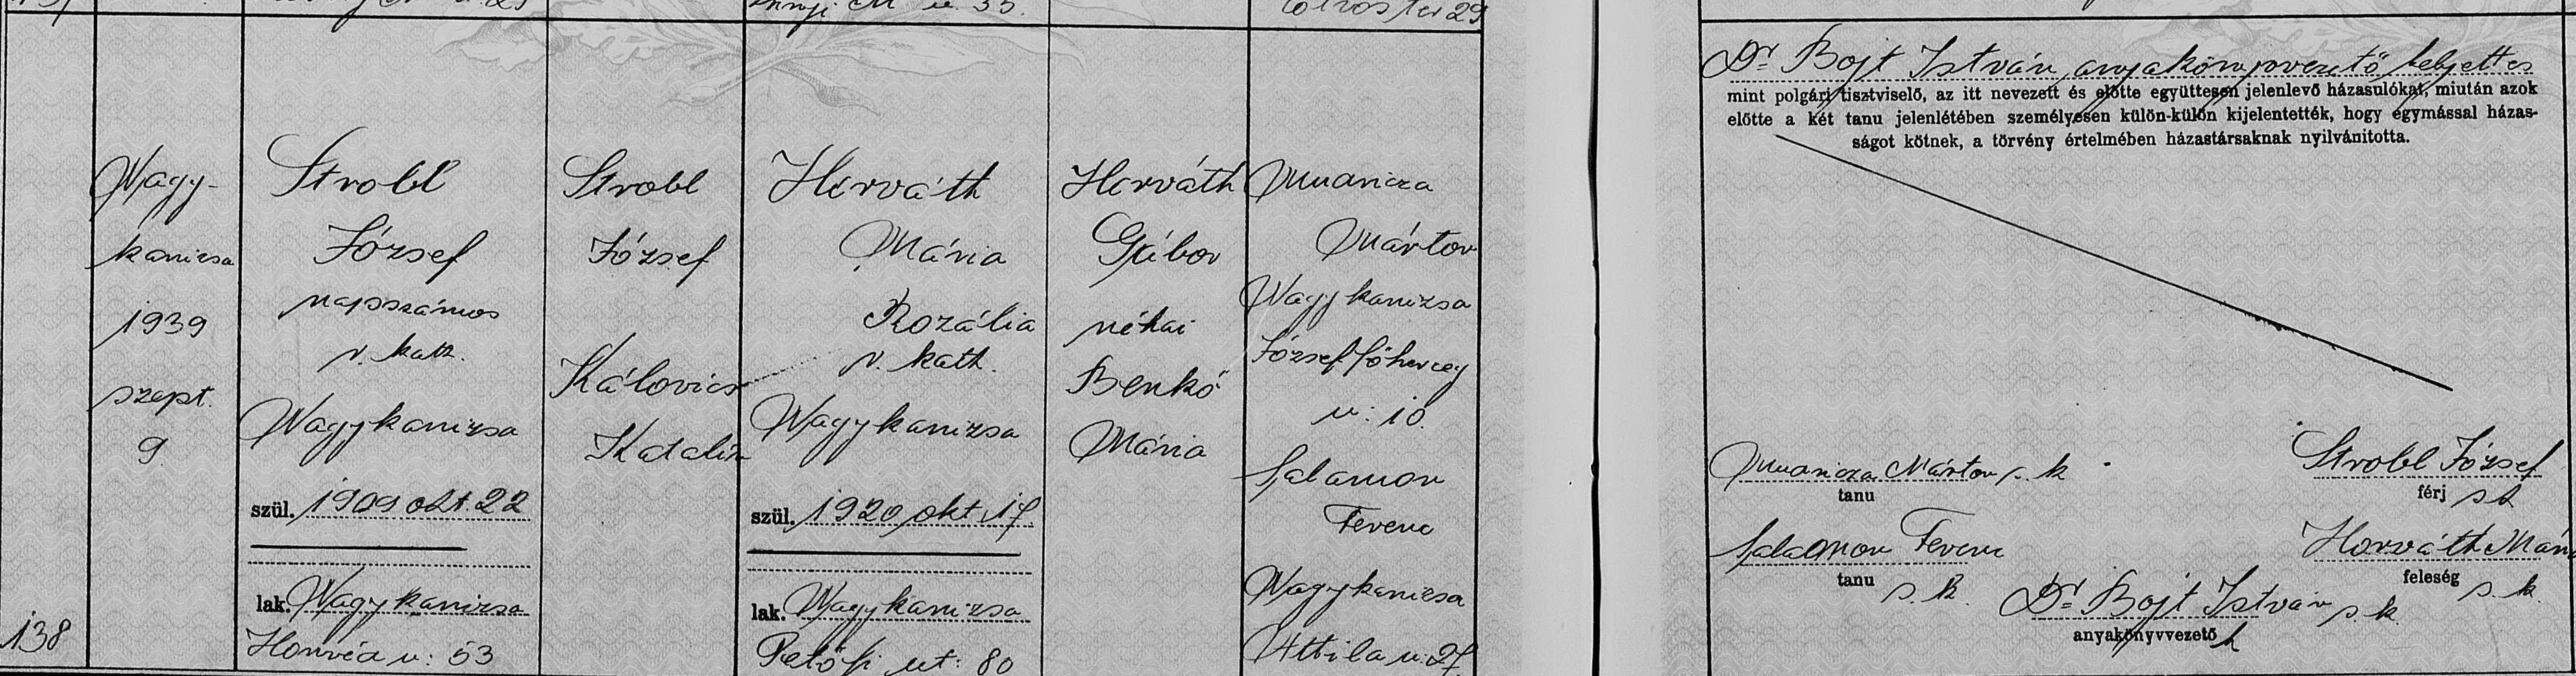 138
Nagy-
kanizsa
1939
szept.
9
Strobl
József
napszámos
r. kath.
Nagykanizsa
szül. 1909 okt. 22
lak. Nagykanizsa
Honvéd u: 53
Strobl
József
Kálovics
Katalin
Horváth
Mária
Rozália
r. kath.
Nagykanizsa
szül. 1920 okt. 17.
lak. Nagykanizsa
Petőfi ut: 80
Horváth
Gábor
néhai
Benkő
Mária
Márton
Nagykanizsa
József főherceg
u: 10.
Salamon
Ferenc
Nagykanizsa
Attila u: 27
Dr. Bojt István anyakönyvvezető helyettes
mint polgári tisztviselő, az itt nevezett és előtte együttesen jelenlevő házasulókat, miután azok
előtte a két tanu jelenlétében személyesen külön-külön kijelentették, hogy egymással házas-
ságot kötnek, a törvény értelmében házastársaknak nyilvánitotta.
Márton s. k.
tanu
Strobl József
férj s k
Salamon Ferenc
tanu s. k.
Horváth Mária
feleség s. k.
Dr. Bojt István s. k.
anyakönyvvezető h